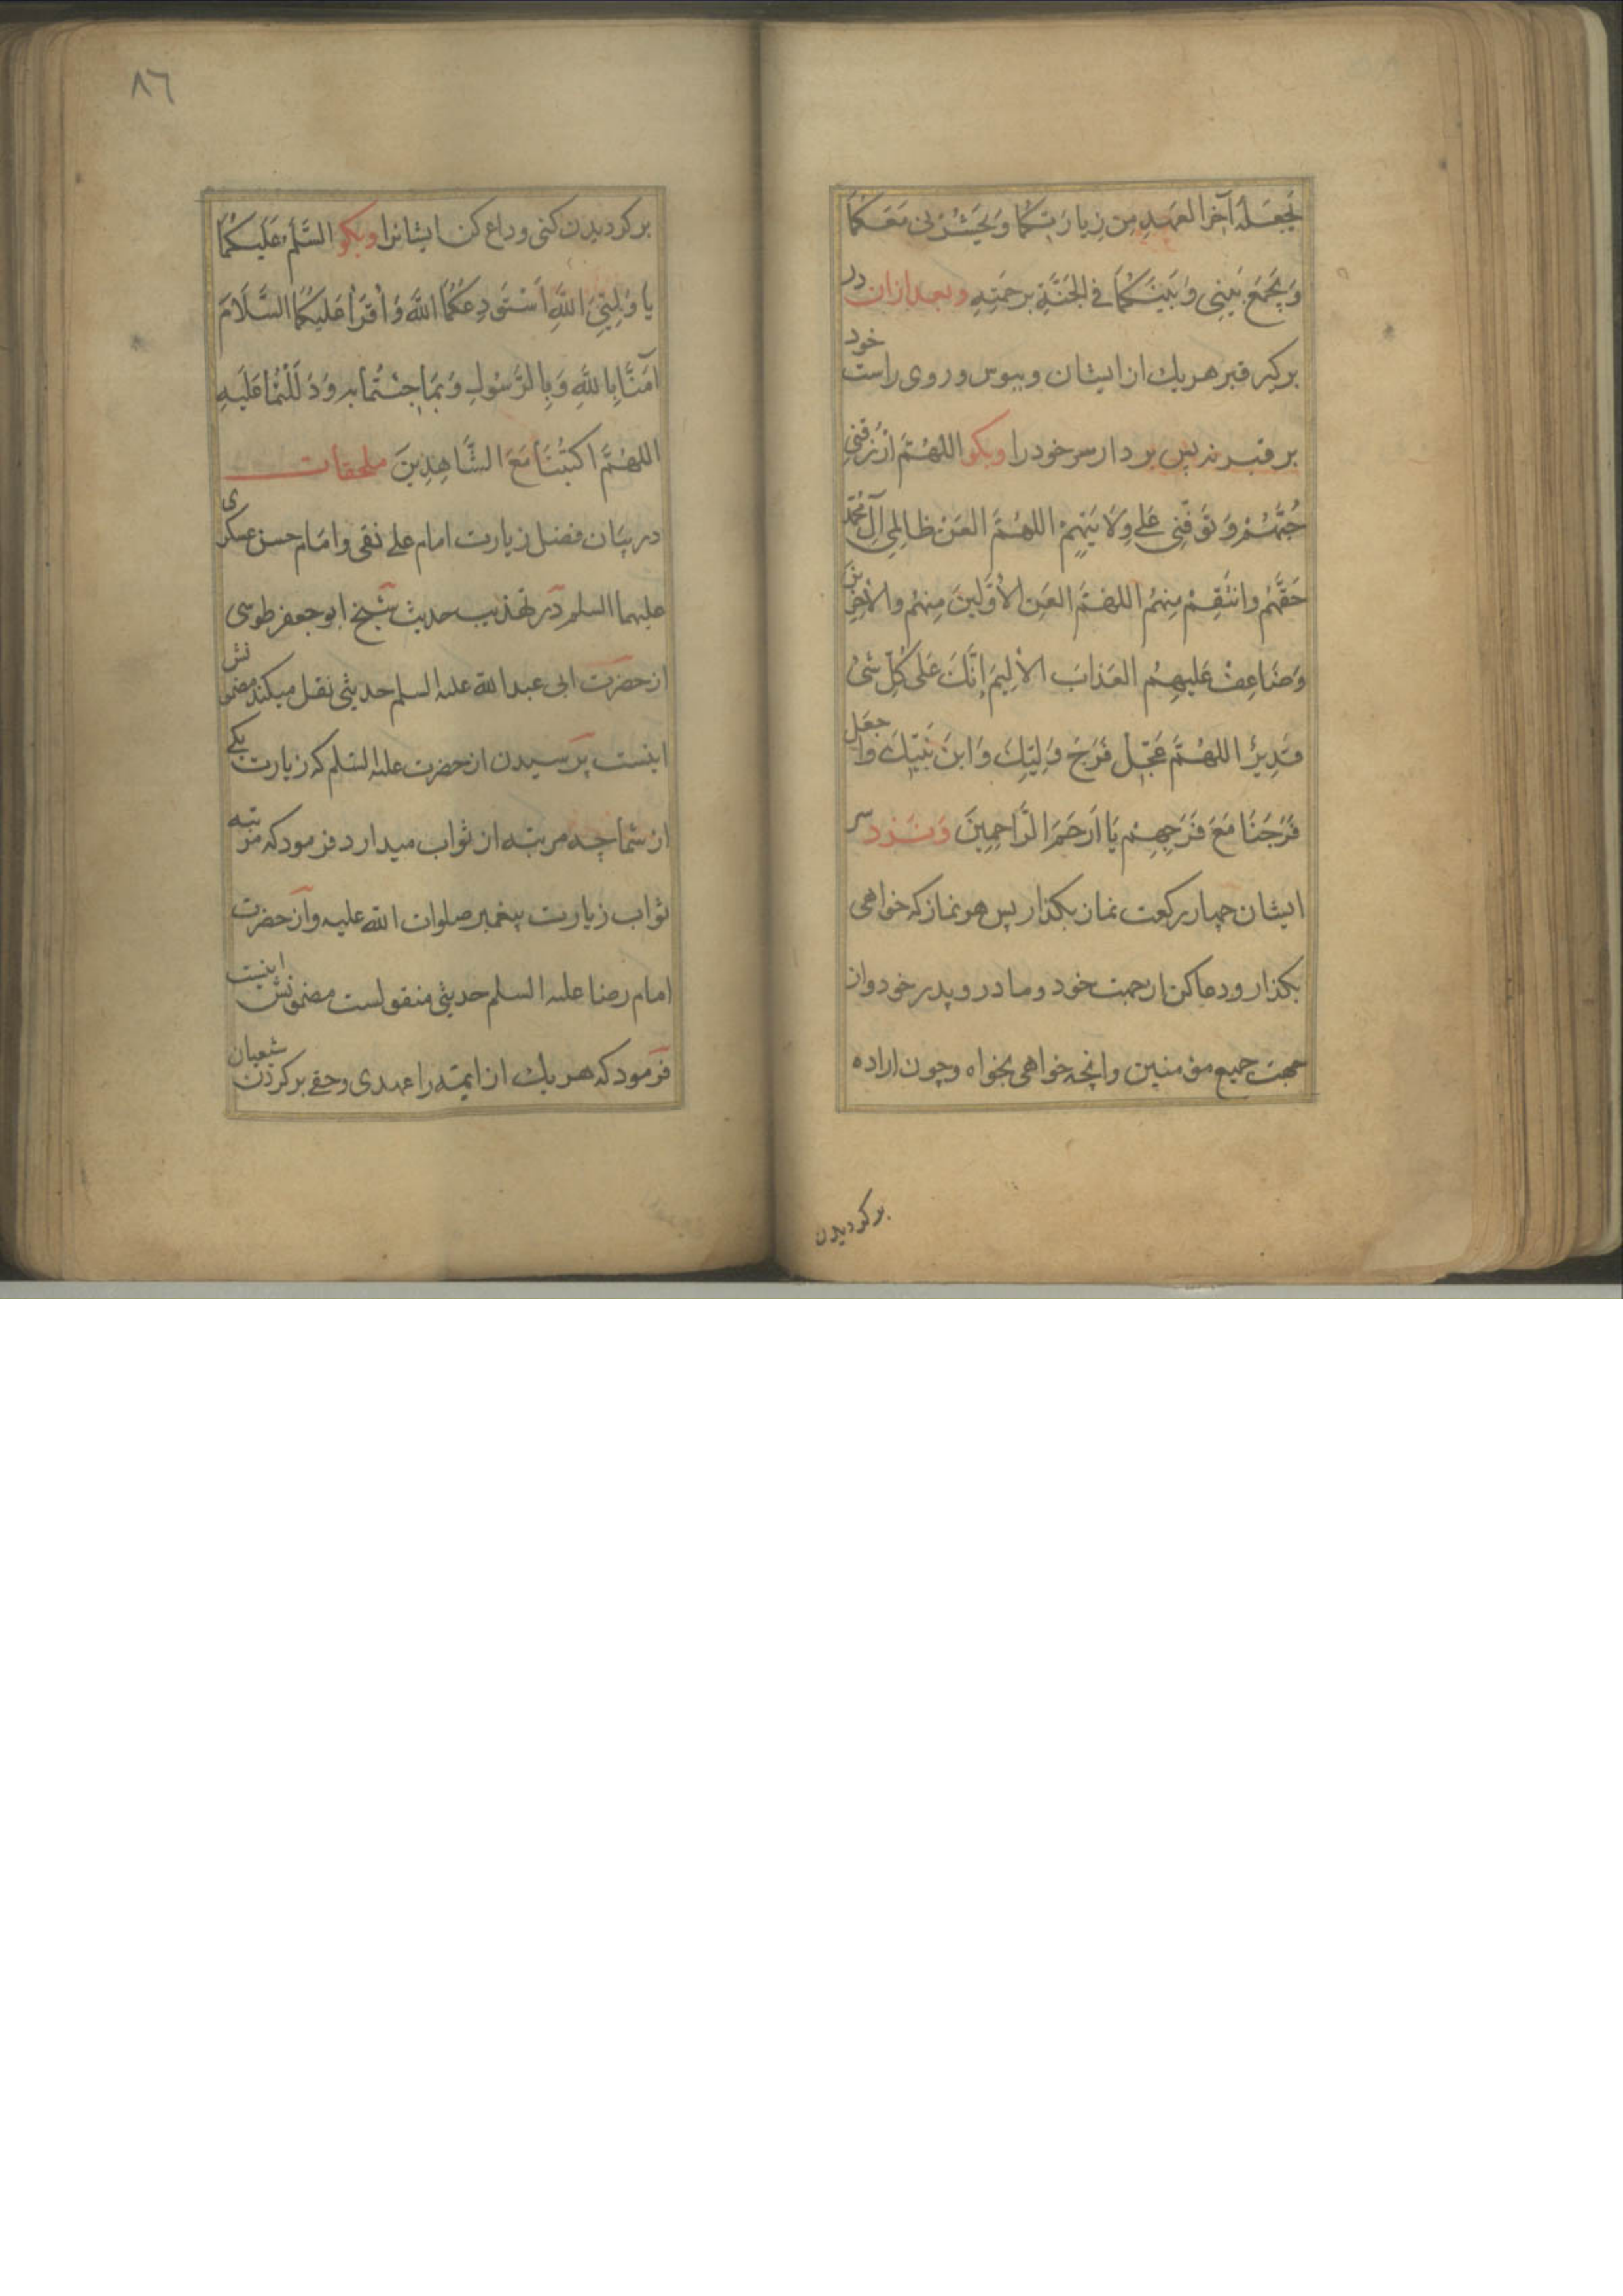 یَجعَلَهُ آخِرَ العَهدِ مِن زِیارَتِکُما وَیَحشُرَنی مَعَکُما
وَیَجمَعَ بَینِی وَبَینَکُما فِی الجَنَّةِ بِرَحمَتِهِ وبعد ازان در
بر کیر قبر هر یك از ایشان و ببوس و روی راست خود
بر قبر نه پس بر دار سر خود را وبکو اللهُمَّ ارزُقنِی
حُبَّهُم وَتَوَفَّنِی عَلی وِلایَتِهِم اللهُمَّ العَن ظالِمِی آلِ مُحَمَّد
حَقَّهُم وانتَقِم مِنهُم اللهُمَّ العَنِ الاَوَّلِینَ مِنهُم والآخِرِین
وَضاعِف عَلَیهِمُ العَذابَ الاَلِیمَ اِنَّكَ عَلی کُلِّ شَیءٍ
قَدِیرٌ اللهُمَّ عَجِّل فَرَجَ وَلِیِّكَ وَابنَ نَبِیِّكَ واجعَل
فَرَجَنا مَعَ فَرَجِهِم یا اَرحَمَ الرّاحِمِینَ وَنَزد سر
ایشان چهار رکعت نماز بکذار پس هر نماز که خواهی
بکذار ودعا کن از جهت خود و مادر و پدر خود واز
جهت جمیع مؤمنین وانچه خواهی بخواه وچون اراده
بر کردیدن
٨٦
بر کردیدن کنی وداع کن ایشانرا وبکو السَّلمُ عَلَیکُما
یا وَلِیَّیِ اللهِ اَستَودِعُکُمَا اللهَ وَاَقرَأُ عَلَیکُمَا السَّلامَ
آمَنّا بِاللهِ وَبِالرَّسُولِ وَبِما جِئتُما بِهِ وَدَلَلتُما عَلَیهِ
اللهُمَّ اکتُبنا مَعَ الشّاهِدِینَ ملحقات
در بیان فضل زیارت امام علی نقی وامام حسن عسکری
علیهما السلم در تهذیب حدیث شیخ ابو جعفر طوسی
از حضرت ابی عبدالله علیه السلم حدیثی نقل میکند مضمونش
اینست پرسیدن از حضرت علیه السلم که زیارت یکی
از شما چه مرتبه از ثواب میدارد فرمود که مرتبه
ثواب زیارت پیغمبر صلوات الله علیه واز حضرت
امام رضا علیه السلم حدیثی منقولست مضمونش اینست
فرمود که هر یك از ایمّه را عهدی وحقی بر کردن شیعیان